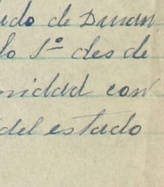 do de Duran
lo 1º desde
nidad con
del estado